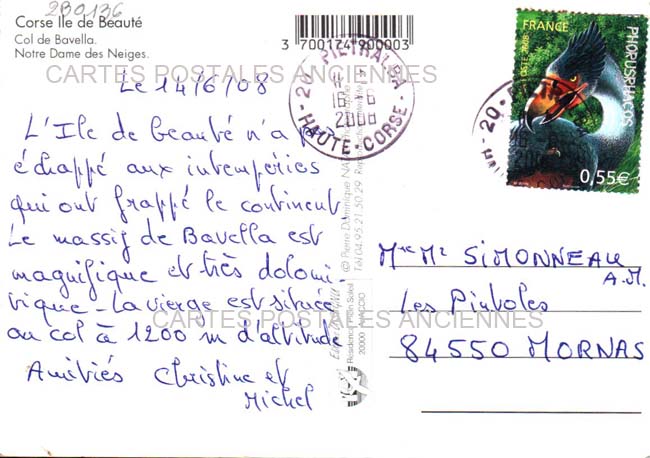 2B0136
Corse Ile de Beauté
Col de Bavella.
Notre Dame des Neiges.
3 700174 900003
CARTES POSTALES ANCIENNES
Le 14/6/08
L'Ile de beauté n'a pas
échappé aux intempéries
qui ont frappé le continent
Le massif de Bavella est
magnifique et très dolomi-
tique - La vierge est située
au col à 1200 m d'altitude
Amitiés Christine et
Michel
20 - PIETRALBA
16-6
2008
HAUTE-CORSE
© Pierre Dominique
Tél 04.95.21.50.29
20000 AJACCIO
FRANCE
PHOPUSRHACOS
0,55€
Mme Mr SIMONNEAU
A.M.
Les Pinboles
84550 MORNAS
CARTES POSTALES ANCIENNES